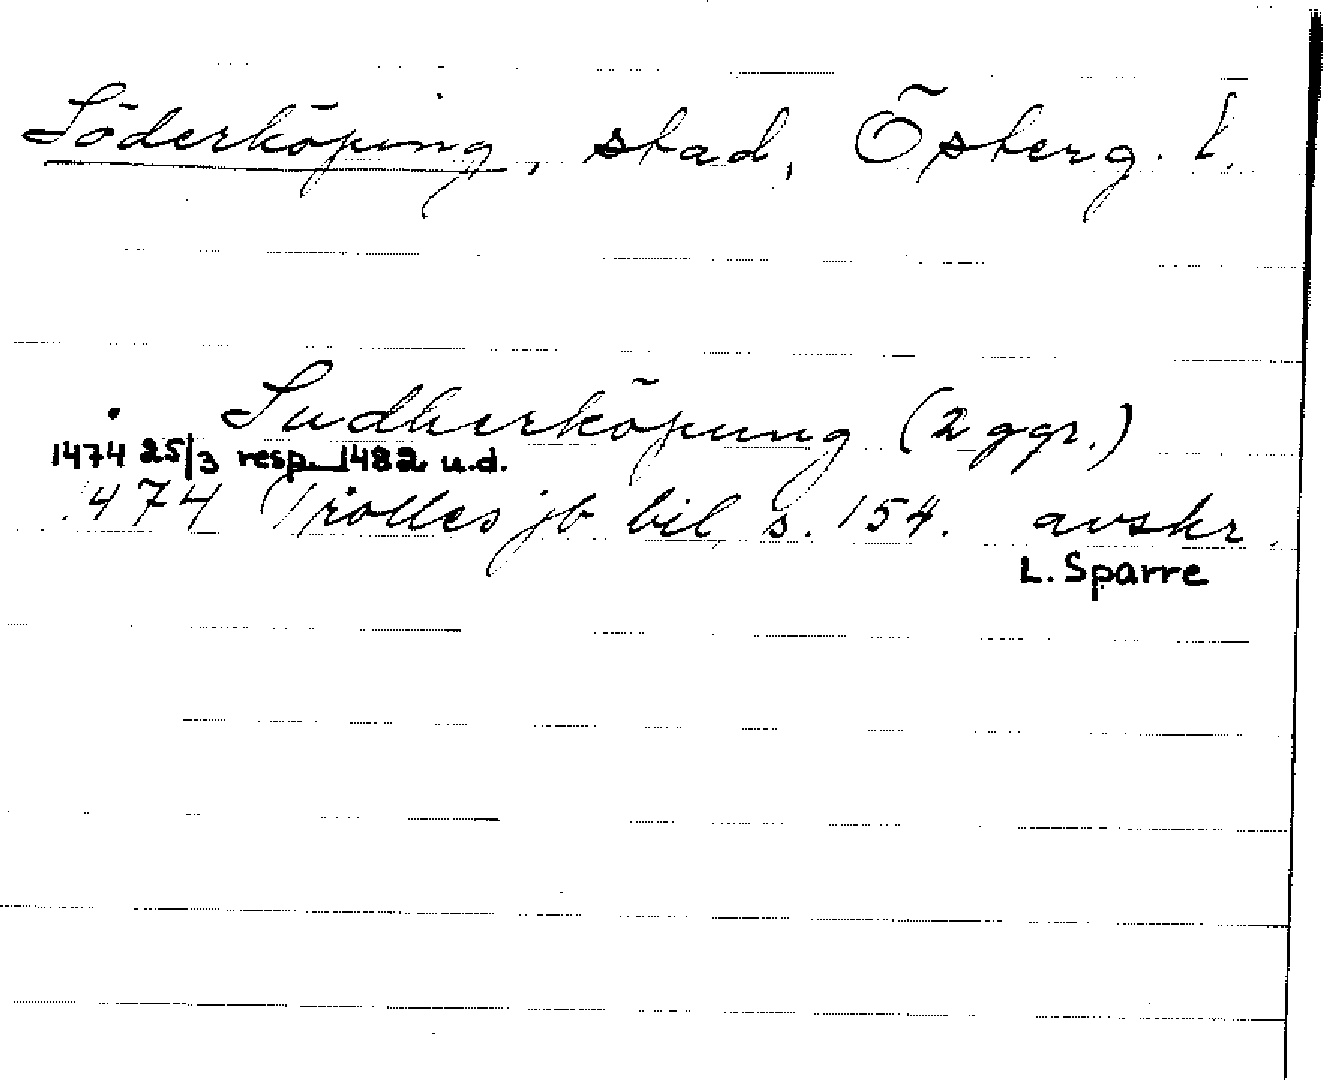 Söderköping, stad, Österg. l.
Sudherköpung (2 ggr.)
1474 25/3 resp. 1482 u.d.
1474 Trolles jb bil s. 154. avskr.
L. Sparre